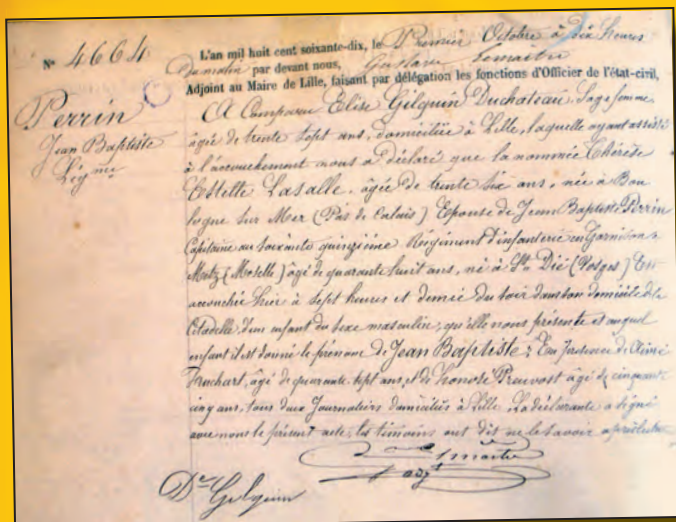 N° 4664
Perrin
Jean Baptiste
Légme
L'an mil huit cent soixante-dix, le Premier Octobre à Dix heures
Du matin par devant nous, Gustave Lemaitre
Adjoint au Maire de Lille, faisant par délégation les fonctions d'Officier de l'état-civil,
A Comparu Elise Gilquin Duchateau, Sage femme
âgée de trente sept ans, domiciliée à Lille, laquelle ayant assisté
à l'accouchement nous a déclaré que la nommée Thérèse
Estelle Lasalle, âgée de trente six ans, née à Bou
logne sur Mer (Pas de Calais) Epouse de Jean Baptiste Perrin
Capitaine au soixante quinzième Régiment d'infanterie en Garnison à
Metz (Moselle) âgé de quarante huit ans, né à St Dié (Vosges) Est
accouchée hier à sept heures et demie du soir dans son domicile à la
Citadelle, d'un enfant du sexe masculin, qu'elle nous présente et auquel
enfant il est donné le prénom de Jean Baptiste; En présence de
âgé de quarante sept ans, et de Honoré Prouvost âgé de cinquante
cinq ans, tous deux Journaliers domiciliés à Lille. La déclarante a signé
avec nous le présent acte, les témoins ont dit ne le savoir après lecture
Lemaitre
adjt
De Gilquin